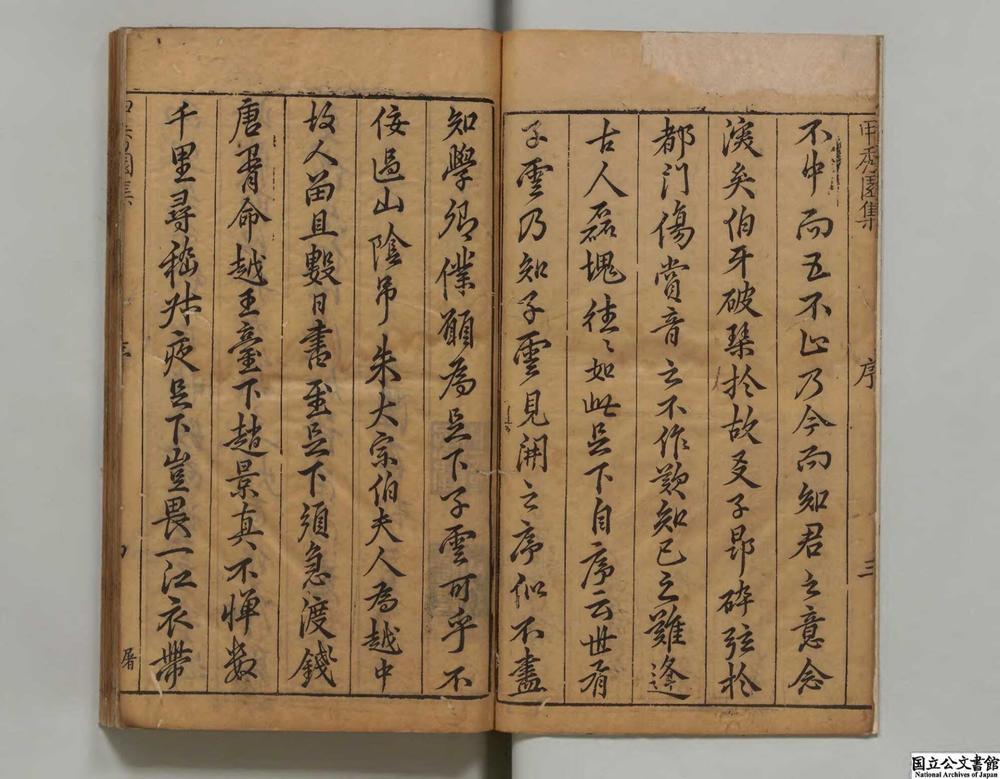 甲秀園集
序
三
不中而五不止乃今而知君之意念
深矣伯牙破琴於故叉子昂碎弦於
都門傷賞音之不作歎知己之難逢
古人磊塊往〻如此足下自序云世有
子雲乃知子雲見開之序似不盡
知學卿僕願為足下子雲可乎不
佞過山陰吊朱大宗伯夫人為越中
故人留且數日書至足下須急渡錢
唐胥命越王臺下趙景真不憚數
千里尋嵇叔夜足下豈畏一江衣帶
國立公文書館
National Archives of Japan